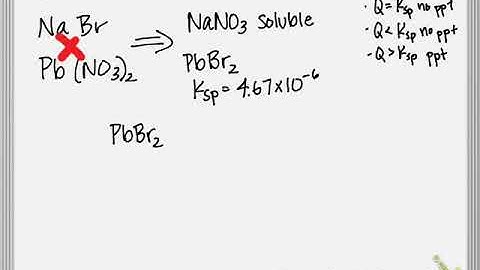 Na Br
Pb (NO3)2
NaNO3 Soluble
PbBr2
Ksp = 4.67×10⁻⁶
PbBr2
- Q = Ksp no ppt
- Q < Ksp no ppt
- Q > Ksp ppt